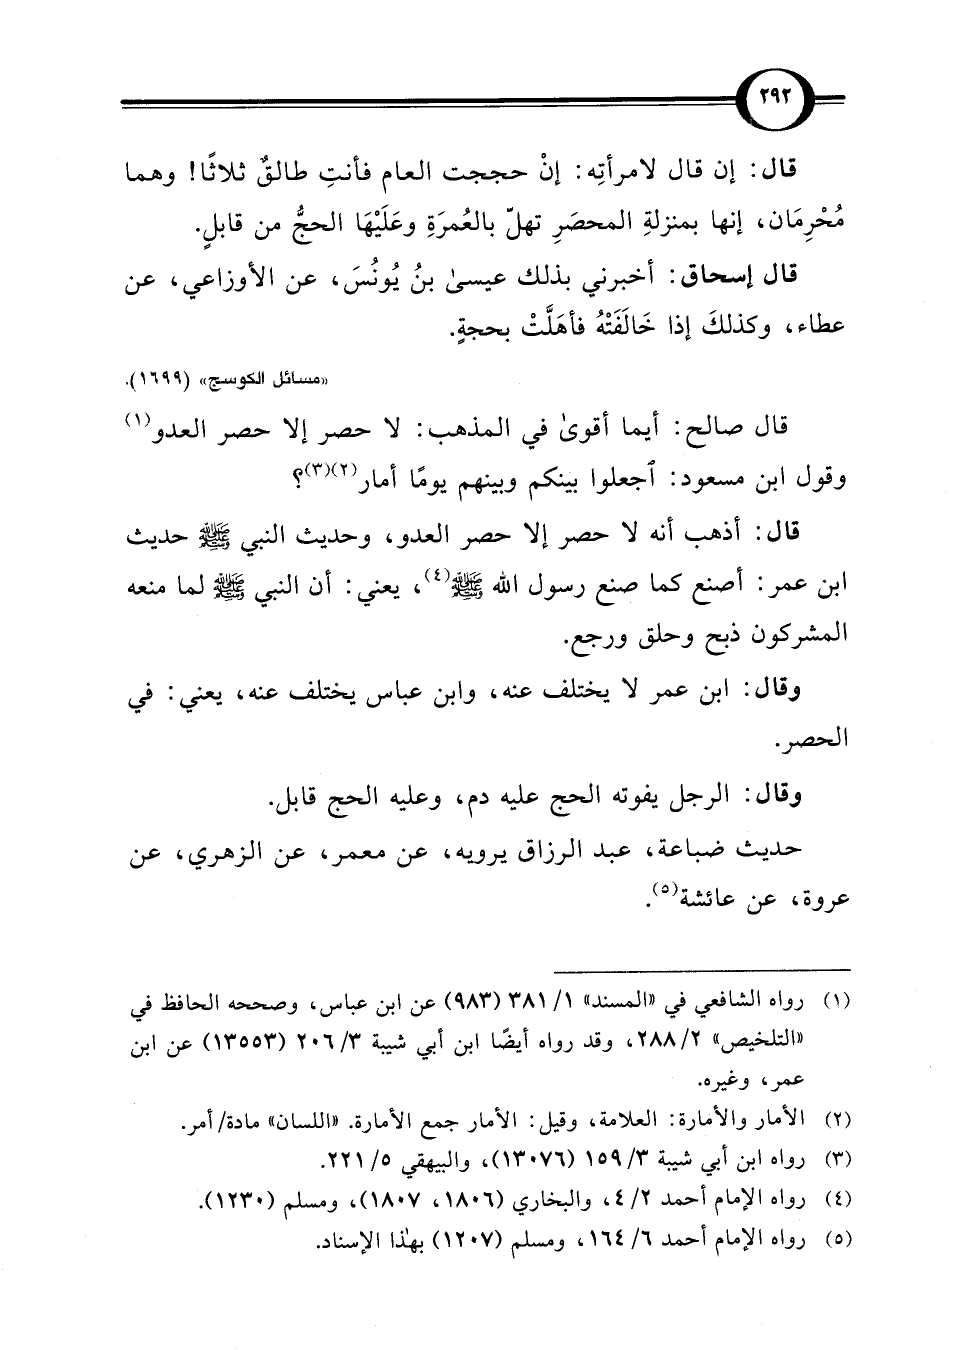 ٢٩٢
قال: إن قال لامرأتِه: إنْ حججت العام فأنتِ طالقٌ ثلاثًا! وهما
مُحْرِمَان، إنها بمنزلةِ المحصَرِ تهلّ بالعُمرَةِ وعَلَيْهَا الحجُّ من قابلٍ.
قال إسحاق: أخبرني بذلك عيسىٰ بنُ يُونُسَ، عن الأوزاعي، عن
عطاء، وكذلكَ إذا خَالَفَتْهُ فأهَلَّتْ بحجةٍ.
«مسائل الكوسج» (١٦٩٩).
قال صالح: أيما أقوىٰ في المذهب: لا حصر إلا حصر العدو(١)
وقول ابن مسعود: ٱجعلوا بينكم وبينهم يومًا أمار(٢)(٣)؟
قال: أذهب أنه لا حصر إلا حصر العدو، وحديث النبي ﷺ حديث
ابن عمر: أصنع كما صنع رسول الله ﷺ(٤)، يعني: أن النبي ﷺ لما منعه
المشركون ذبح وحلق ورجع.
وقال: ابن عمر لا يختلف عنه، وابن عباس يختلف عنه، يعني: في
الحصر.
وقال: الرجل يفوته الحج عليه دم، وعليه الحج قابل.
حديث ضباعة، عبد الرزاق يرويه، عن معمر، عن الزهري، عن
عروة، عن عائشة(٥).
(١) رواه الشافعي في «المسند» ١/ ٣٨١ (٩٨٣) عن ابن عباس، وصححه الحافظ في
«التلخيص» ٢/ ٢٨٨، وقد رواه أيضًا ابن أبي شيبة ٣/ ٢٠٦ (١٣٥٥٣) عن ابن
عمر، وغيره.
(٢) الأمار والأمارة: العلامة، وقيل: الأمار جمع الأمارة. «اللسان» مادة/ أمر.
(٣) رواه ابن أبي شيبة ٣/ ١٥٩ (١٣٠٧٦)، والبيهقي ٥/ ٢٢١.
(٤) رواه الإمام أحمد ٢/ ٤، والبخاري (١٨٠٦، ١٨٠٧)، ومسلم (١٢٣٠).
(٥) رواه الإمام أحمد ٦/ ١٦٤، ومسلم (١٢٠٧) بهٰذا الإسناد.